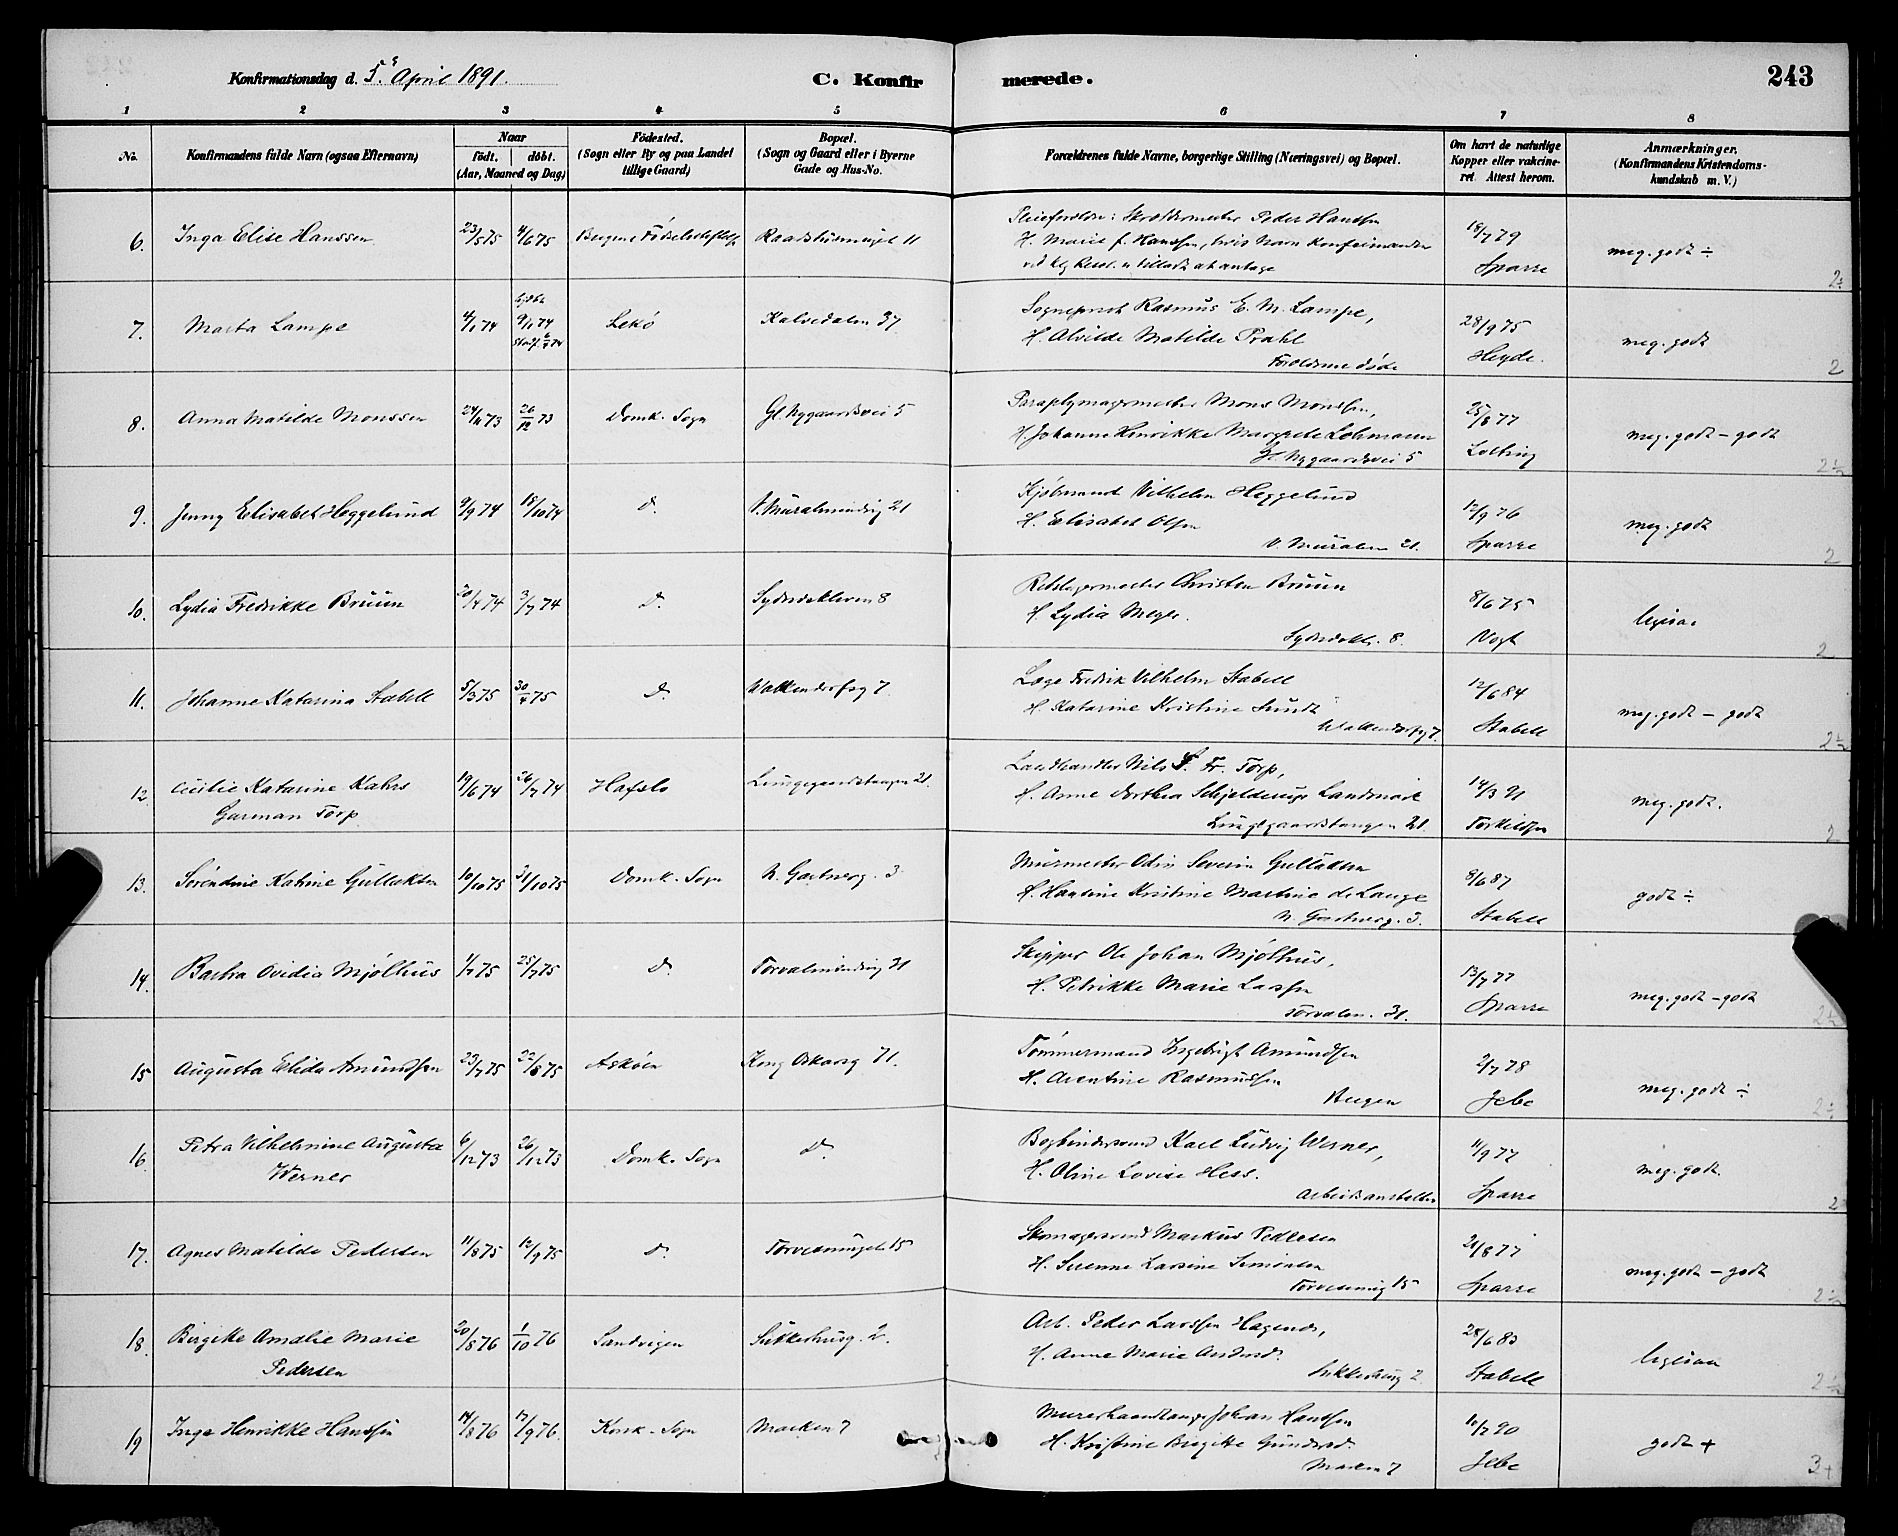 Konfirmationsdag d. 5 April 1891. C. Konfirmerede. 243
1 2 3 4 5 6 7 8
No. Konfirmandens fulde Navn (ogsaa Efternavn) Naar födt. döbt. (Aar, Maaned og Dag) Födested. (Sogn eller By og paa Landet tillige Gaard) Bopæl. (Sogn og Gaard eller i Byerne Gade og Hus-No. Forældrenes fulde Navne, borgerlige Stilling (Næringsvei) og Bopæl. Om havt de naturlige Kopper eller vakcineret. Attest herom. Anmærkninger. (Konfirmandens Kristendomskundskab m. V.)
6. Inga Elise Hanssen 23/5 75 4/6 75 Bergens Fødselsstiftelse Raadstusmuget 11
Pleieforældre: Skræddermester Peder Hanssen
H. Marie f. Hanssen, hvis Navn Konfirmanden
ved kg Resol. er tilladt at antage
18/7 79 Sparre meg. godt ÷ 2÷
7. Marta Lampe 4/1 74 hjdbt 9/1 74 Stadf. 6/4 74 Lekø Kalvedalen 37
Sogneprest Rasmus E. M. Lampe,
H. Alvilde Matilde Prahl
Forældrene døde
28/9 75 Heyde. meg. godt 2
8. Anna Matilde Monssen 24/11 73 26/12 73 Domk. Sogn Gl. Nygaardsvei 5
Paraplymagermester Mons Monssen,
H. Johanne Henrikke Margrete Lohmann
Gl. Nygaardsvei 5
25/8 77 meg. godt - godt 2½
9. Jenny Elisabet Heggelund 9/9 74 18/10 74 d. V. Muralmindnig 21
Kjøbmand Vilhelm Heggelund
H. Elisabet Olsen
V. Muralm 21.
12/9 76 Sparre meg. godt 2
10. Lydia Fredrikke Bruun 20/4 74 3/7 74 d. Sydnæskleven 8
Rebslagermester Christen Bruun
H. Lydia Meyer.
Sydnæskl. 8.
8/6 75 Vogt ligesaa 2
11. Johanne Katarina Stabell 5/3 75 30/4 75 d. Walkendorfsg 7.
Læge Fredrik Vilhelm Stabell
H. Katarine Kristine Sundt
Walkendorfsg 7.
12/6 84 Stabell meg. godt - godt 2½
12. Cecilie Katarine Kahrs Garman Torp 19/6 74 26/7 74 Hafslo Lungegaardstangen 21.
Landhandler Nils S. Fr. Torp,
H. Anne Dorthea Schjelderup Landmark
Lungegaardstangen 21.
14/3 91 Torkildsen meg. godt. 2
13. Sørendine Katrine Gullaksen 10/10 75 31/10 75 Domk. Sogn N. Gartnerg. 3
Murmester Odin Severin Gullaksen
H. Hansine Kristine Martine de Lange
N. Gartnerg. 3.
8/6 87 Stabell godt ÷
14. Barbra Ovidia Mjølhus 1/7 75 25/7 75 d. Torvalmindnig 31
Skipper Ole Johan Mjølhus,
H. Petrikke Marie Larsen
Torvalm. 31.
13/7 77 Sparre meg. godt - godt 2½
15. Augusta Elida Amundsen 23/7 75 22/8 75 Askøen Kong Oskarsg 71.
Tømmermand Ingebrigt Amundsen
H. Arentine Rasmussen
Bergen
2/7 78 Jebe meg. godt ÷ 2÷
16. Petra Vilhelmine Augusta Werner 6/12 73 26/12 73 Domk. Sogn d.
Bogbindersvend Karl Ludvig Werner,
H. Oline Lovise Hess.
Arbeidsanstalten
11/9 77 Sparre meg. godt. 2
17. Agnes Matilde Pedersen 11/8 75 12/9 75 d. Torvesmuget 15
Skomagersvend Markus Pedersen
H. Serenne Larsine Simonsen
Torvesmug 15
21/8 77 Sparre meg. godt - godt 2½
18. Birgitte Amalie Marie Pedersen 20/8 76 1/10 76 Sandvigen Sukkerhusg. 2.
Arb. Peder Larssen Hagenæs,
H. Anne Marie Andersd.
Sukkerhusg 2
28/6 83 Stabell ligesaa 2½
19 Inga Henrikke Hanssen 14/8 76 17/9 76. Korsk. Sogn Marken 7
Murerhaandlanger Johan Hanssen
H. Kristine Birgitte Gundersd.
Marken 7
10/7 90 Jebe godt + 3+